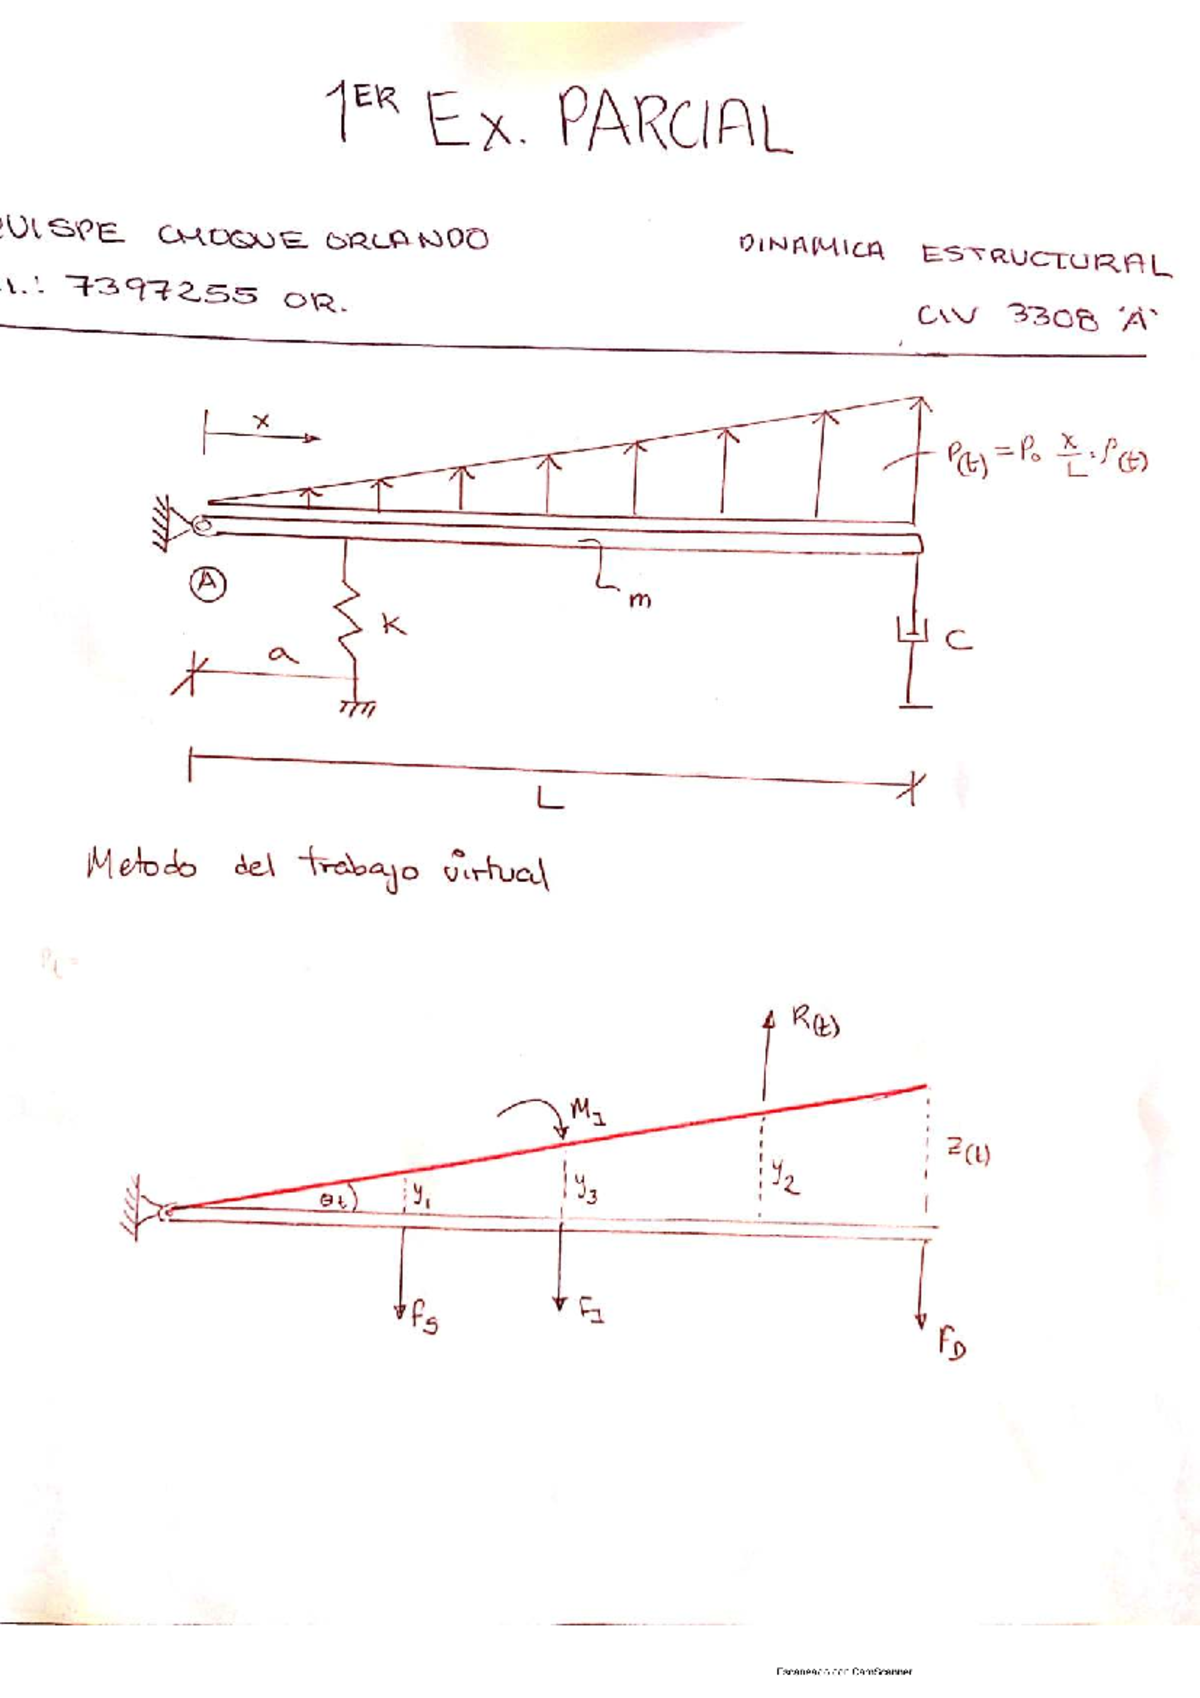 1ER Ex. PARCIAL
QUISPE CHOQUE ORLANDO
DINAMICA ESTRUCTURAL
.I.: 7397255 OR.
CIV 3308 "A"
x
P(t) = P₀ x/L · P(t)
A
m
K
C
a
L
Metodo del trabajo virtual
R(t)
M_I
Z(t)
θt
y₁
y₃
y₂
F_S
F_I
F_D
Escaneado con CamScanner